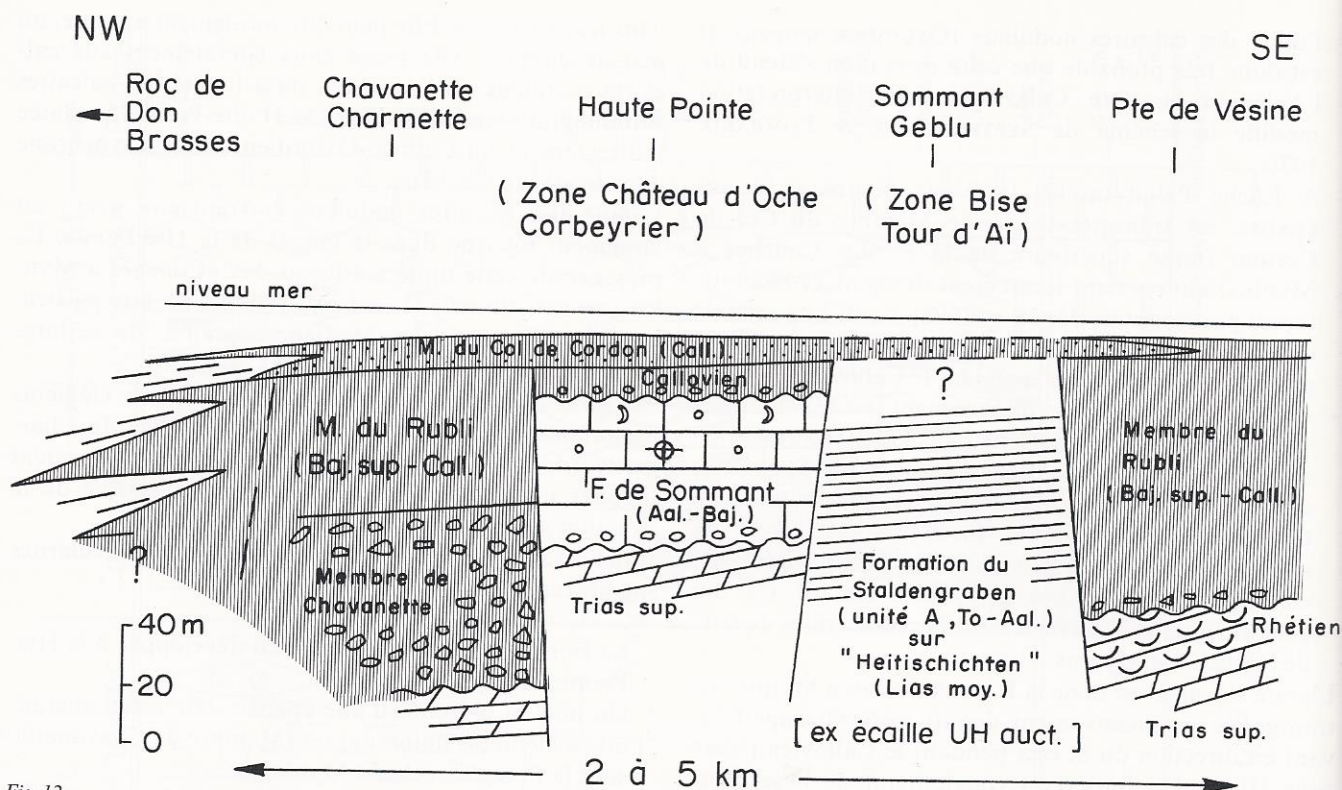 NW
SE
Roc de
Don
Brasses
Chavanette
Charmette
Haute Pointe
( Zone Château d'Oche
Corbeyrier )
Sommant
Geblu
( Zone Bise
Tour d'Aï )
Pte de Vésine
niveau mer
M. du Col de Cordon (Call.)
Callovien
?
M. du Rubli
( Baj. sup - Call.)
F. de Sommant
(Aal.-Baj.)
Membre du
Rubli
(Baj. sup. - Call.)
Membre de
Chavanette
Trias sup.
Formation du
Staldengraben
( unité A , To-Aal.)
sur
"Heitischichten"
(Lias moy.)
[ ex écaille UH auct. ]
Rhétien
Trias sup.
?
40 m
20
0
2 à 5 km
Fig. 12